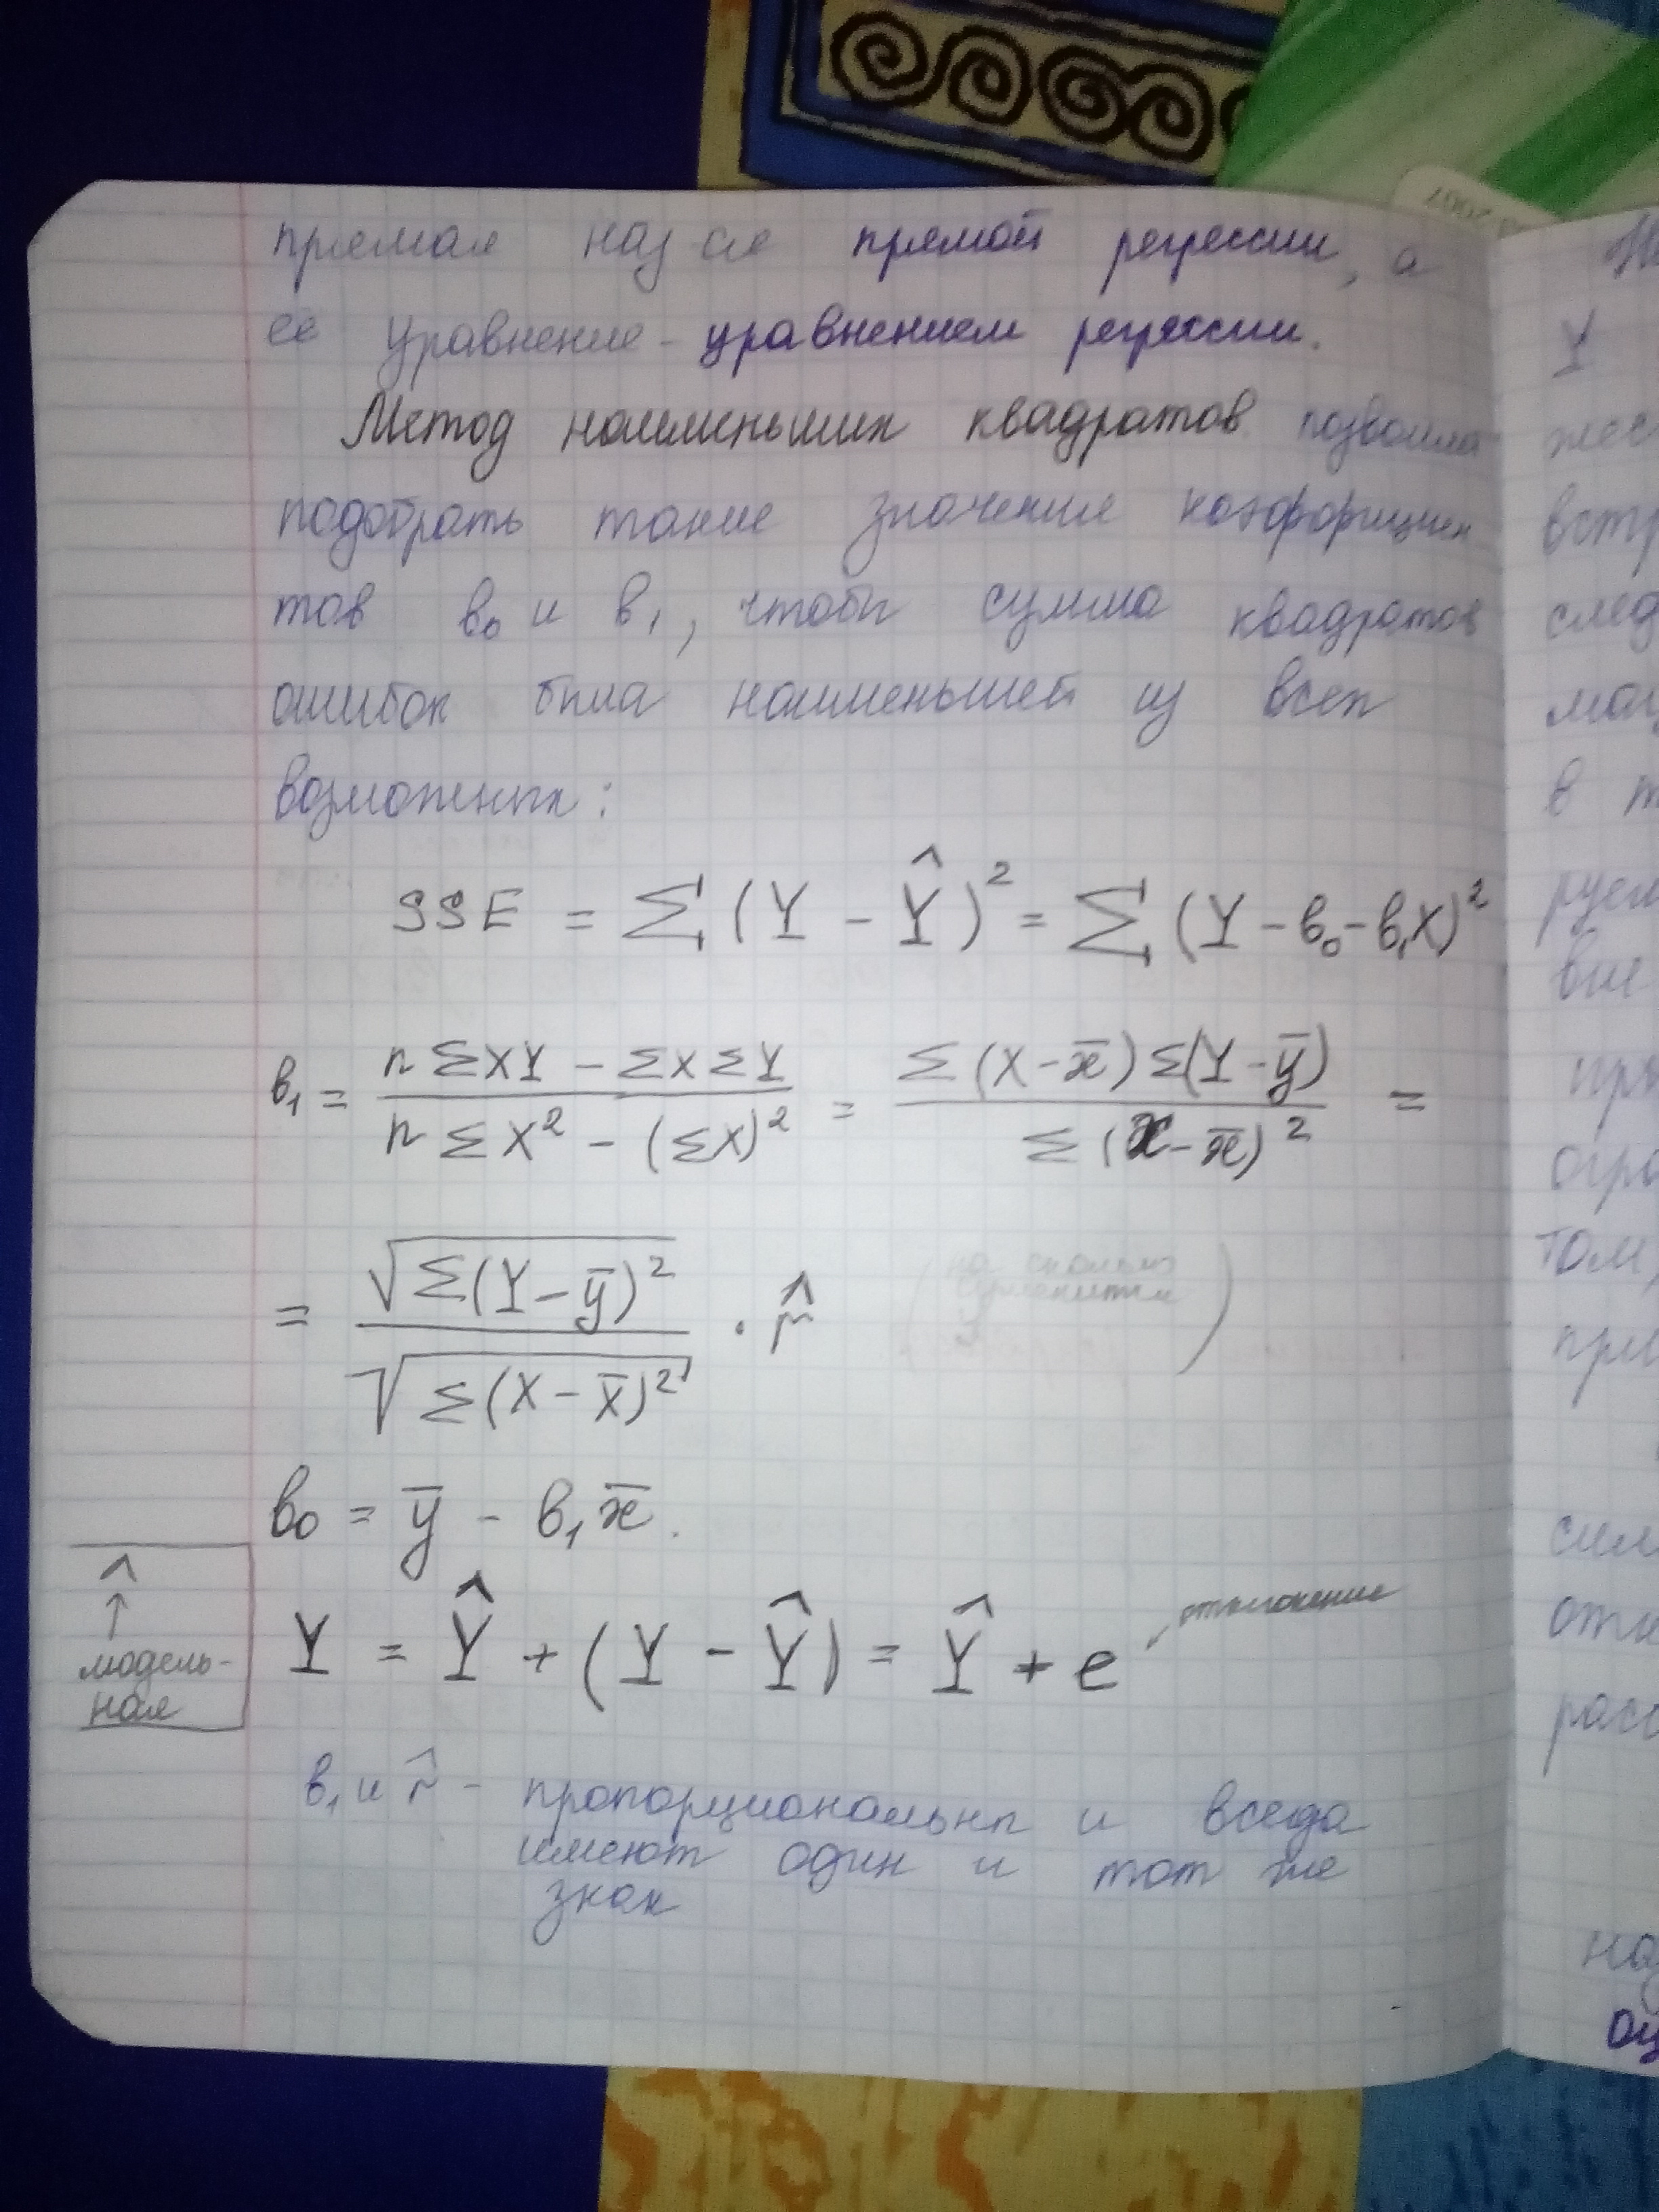 прямая наз ся прямой регрессии, а
ее уравнение - уравнением регрессии.
Метод наименьших квадратов позволил
подобрать такие значения коэффициен
тов в₀ и в₁, чтобы сумма квадратов
ошибок была наименьшей из всех
возможных:
SSE = ∑(Y - Ŷ)² = ∑(Y - в₀ - в₁X)²
в₁ = (n∑XY - ∑X∑Y) / (n∑X² - (∑X)²) = ∑(X - x̄)∑(Y - ȳ) / ∑(x - x̄)² =
= √∑(Y - ȳ)² / √∑(X - X̄)² · r̂ (на сколько
y)
в₀ = ȳ - в₁x̄.
^
↑
модель-
ная
Y = Ŷ + (Y - Ŷ) = Ŷ + e отклонение
в₁ и r̂ - пропорциональны и всегда
имеют один и тот же
знак
Y
жес
встр
след
в т
руем
вне
при
огра
том,
при
сил
отк
расс
на
оц
2007